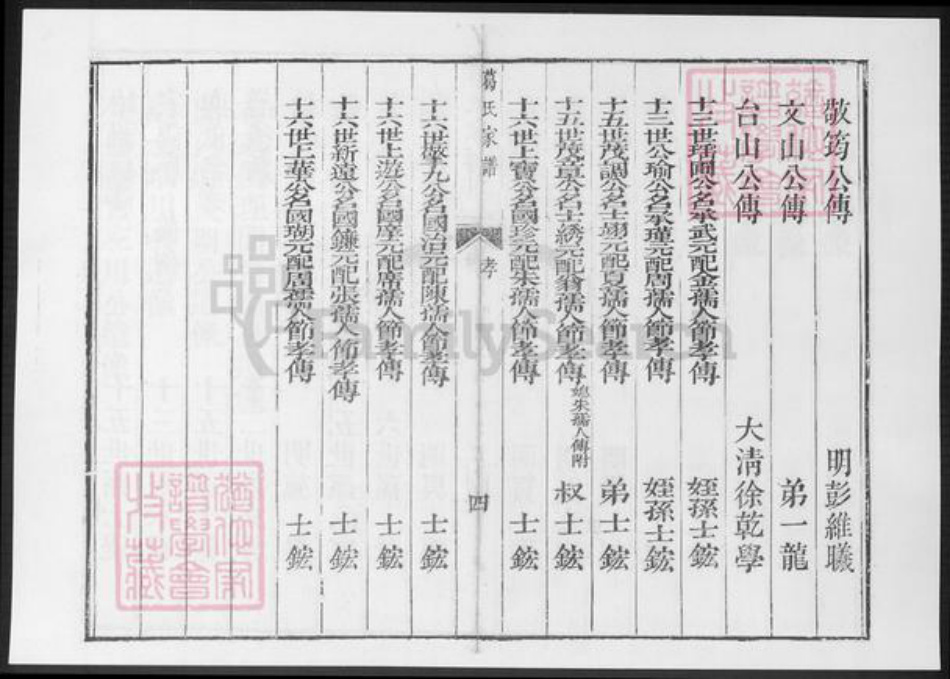 敬筠公傳 明彭維曦
文山公傳 弟一龍
台山公傳 大清徐乾學
十三世瑤圃公名承武元配金孺人節孝傳 姪孫士鋐
十三世公瑜公名承瑾元配周孺人節孝傳 姪孫士鋐
十五世茂調公名士翊元配夏孺人節孝傳 弟士鋐
十五世茂章公名士綉元配翁孺人節孝傳 媳朱孺人傳附 叔士鋐
十六世上寶公名國珍元配朱孺人節孝傳 士鋐
葛氏家譜 孝 四
十六世擎九公名國治元配陳孺人節孝傳 士鋐
十六世上遊公名國摩元配席孺人節孝傳 士鋐
十六世新遠公名國鐮元配張孺人節孝傳 士鋐
十六世上華公名國瑚元配周孺人節孝傳 士鋐
FamilySearch